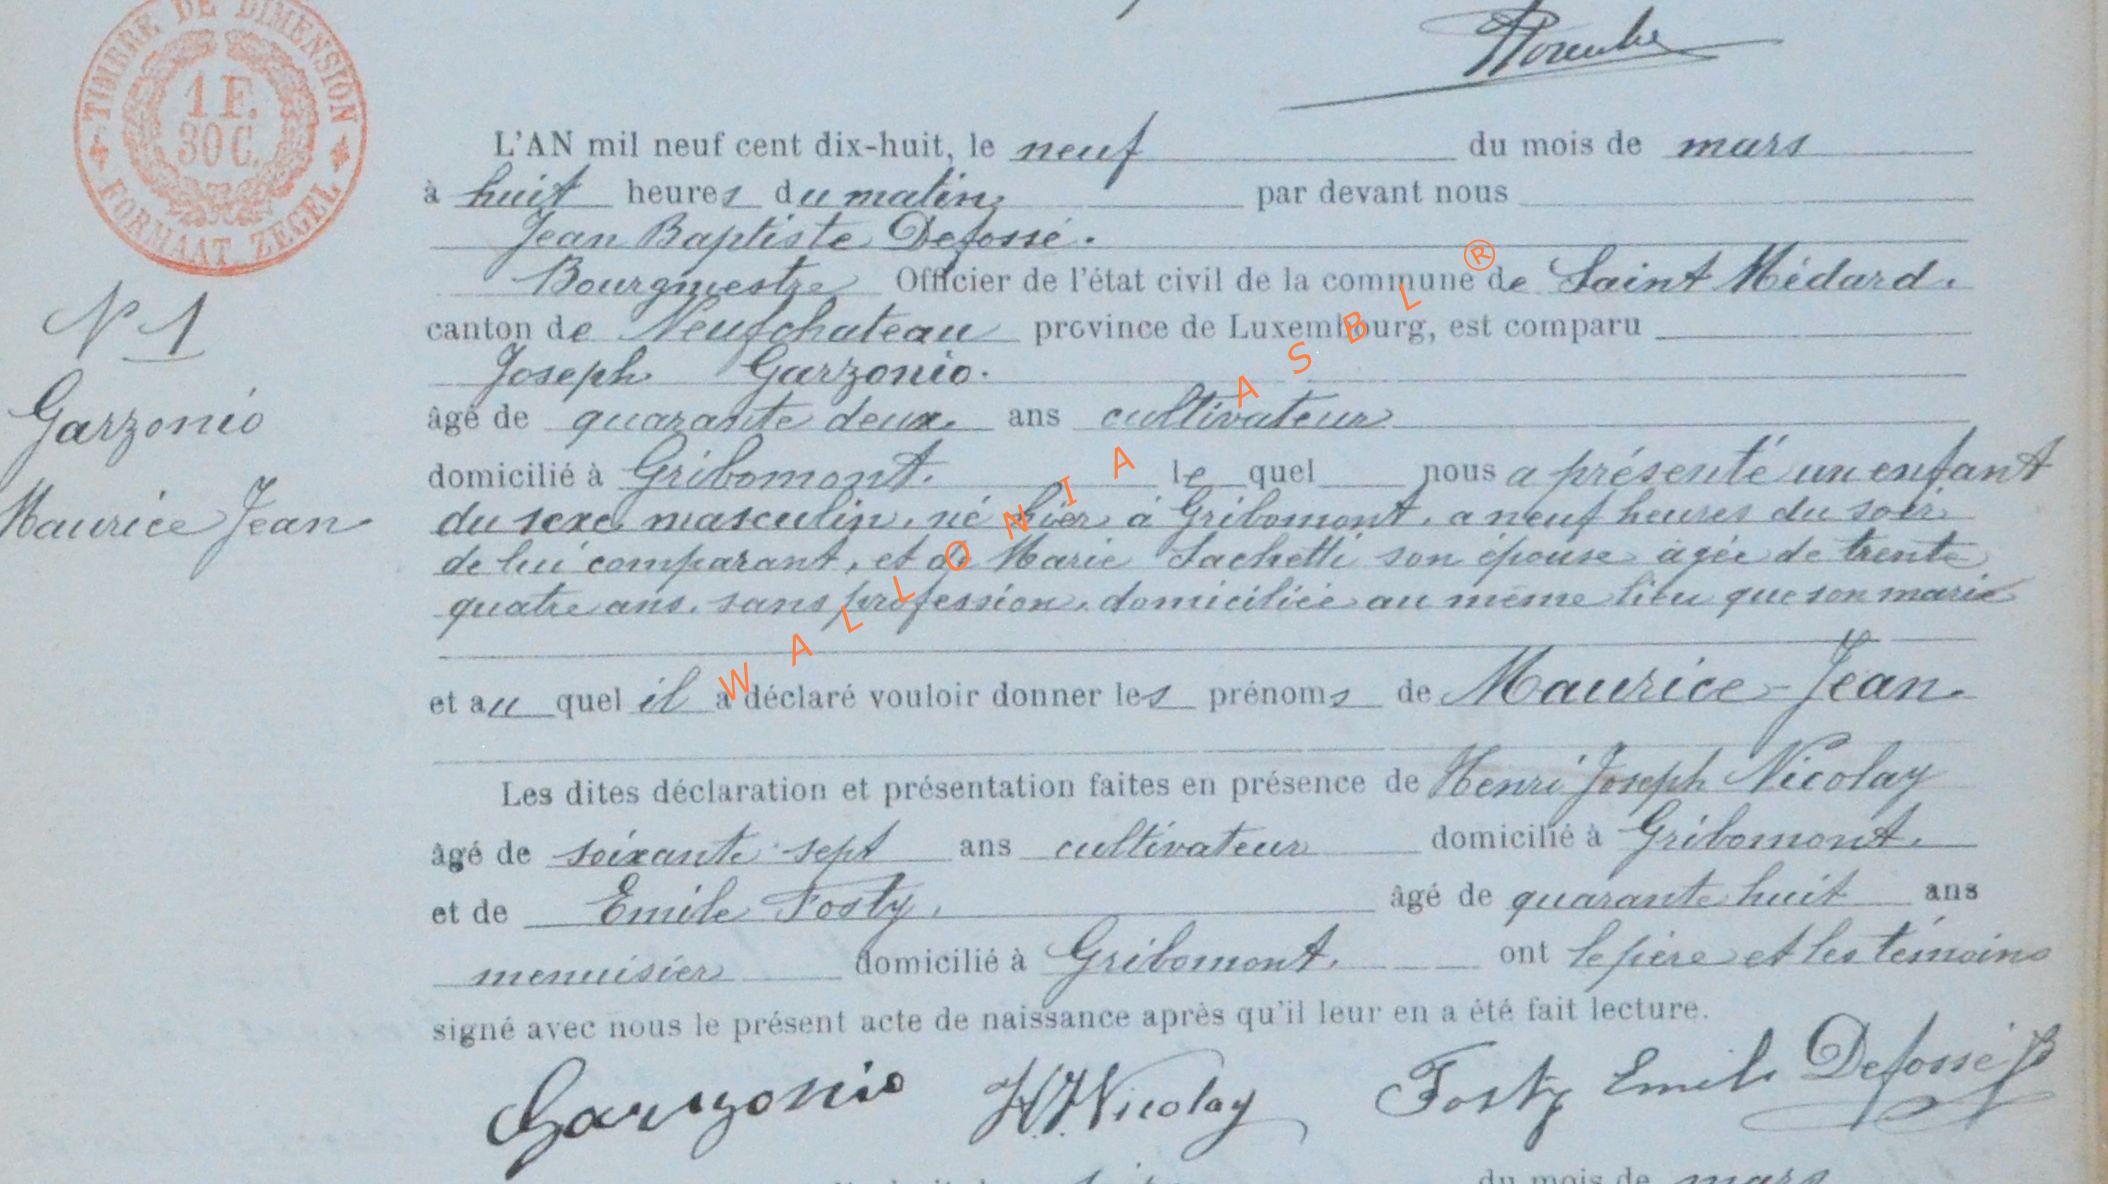 TIMBRE DE DIMENSION
1 F.
30 C.
FORMAAT ZEGEL
L'AN mil neuf cent dix-huit, le neuf du mois de mars
à huit heures du matin, par devant nous
Jean Baptiste Defossé.
Bourgmestre Officier de l'état civil de la commune de Saint Médard.
canton de Neufchateau province de Luxembourg, est comparu
Joseph Garzonio.
âgé de quarante deux ans cultivateur
domicilié à Gribomont. le quel nous a présenté un enfant
du sexe masculin, né hier à Gribomont, a neuf heures du soir,
de lui comparant, et de Marie Sachetti son épouse âgée de trente
quatre ans, sans profession, domiciliée au même lieu que son marie
et au quel il a déclaré vouloir donner les prénoms de Maurice-Jean.
Les dites déclaration et présentation faites en présence de Henri Joseph Nicolay
âgé de soixante sept ans cultivateur domicilié à Gribomont.
et de Emile Fosty, âgé de quarante huit ans
menuisier domicilié à Gribomont. ont le père et les témoins
signé avec nous le présent acte de naissance après qu'il leur en a été fait lecture.
Garzonio HJ Nicolay Fosty Emile Defossé JB
N 1
Garzonio
Maurice Jean
WALLONIA ASBL ®
du mois de mars